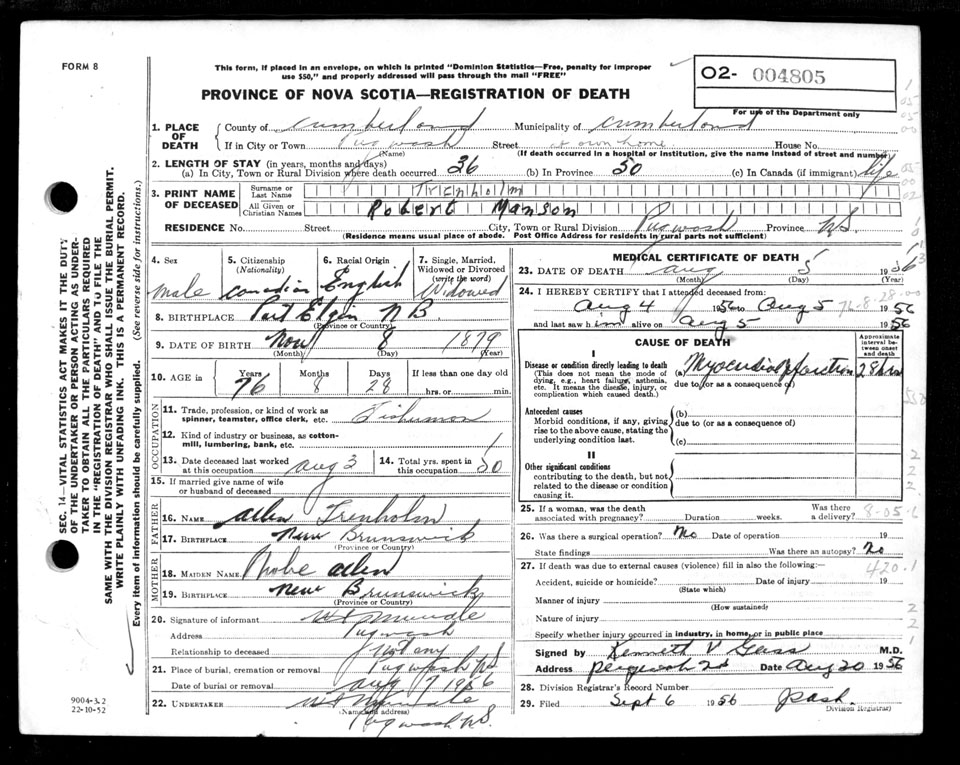 FORM 8
This form, if placed in an envelope, on which is printed "Dominion Statistics—Free, penalty for improper
use $50," and properly addressed will pass through the mail "FREE"
O2- 004805
For use of the Department only
PROVINCE OF NOVA SCOTIA—REGISTRATION OF DEATH
SEC. 14—VITAL STATISTICS ACT MAKES IT THE DUTY
OF THE UNDERTAKER OR PERSON ACTING AS UNDER-
TAKER TO OBTAIN ALL THE PARTICULARS REQUIRED
IN THE "REGISTRATION OF DEATH" AND TO FILE THE
SAME WITH THE DIVISION REGISTRAR WHO SHALL ISSUE THE BURIAL PERMIT.
WRITE PLAINLY WITH UNFADING INK. THIS IS A PERMANENT RECORD.
Every item of information should be carefully supplied. (See reverse side for instructions.)
1. PLACE OF DEATH
County of Cumberland Municipality of Cumberland
If in City or Town Pugwash Street at own home House No.
(Name) (If death occurred in a hospital or institution, give the name instead of street and number)
2. LENGTH OF STAY (in years, months and days)
(a) In City, Town or Rural Division where death occurred 36 (b) In Province 50 (c) In Canada (if immigrant) life
3. PRINT NAME OF DECEASED
Surname or Last Name Trenholm
All Given or Christian Names Robert Manson
RESIDENCE No. Street City, Town or Rural Division Pugwash Province N.S.
(Residence means usual place of abode. Post Office Address for residents in rural parts not sufficient)
4. Sex male
5. Citizenship (Nationality) Canadian
6. Racial Origin English
7. Single, Married, Widowed or Divorced (write the word) Widowed
8. BIRTHPLACE Port Elgin N B
(Province or Country)
9. DATE OF BIRTH Nov 8 1879
(Month) (Day) (Year)
10. AGE in Years 76 Months 8 Days 28 If less than one day old hrs. or min.
OCCUPATION
11. Trade, profession, or kind of work as
spinner, teamster, office clerk, etc. Fisherman
12. Kind of industry or business, as cotton-
mill, lumbering, bank, etc.
13. Date deceased last worked at this occupation Aug 3
14. Total yrs. spent in this occupation 50
15. If married give name of wife
or husband of deceased
FATHER
16. NAME Allen Trenholm
17. BIRTHPLACE New Brunswick
(Province or Country)
MOTHER
18. MAIDEN NAME Allen
19. BIRTHPLACE New Brunswick
(Province or Country)
20. Signature of informant
Address Pugwash
Relationship to deceased
21. Place of burial, cremation or removal Pugwash NS
Date of burial or removal Aug 7 1956
22. UNDERTAKER
(Name and address)
Pugwash N.S.
9004-3.2
22-10-52
MEDICAL CERTIFICATE OF DEATH
23. DATE OF DEATH Aug 5 1956
(Month) (Day) (Year)
24. I HEREBY CERTIFY that I attended deceased from:
Aug 4 1956 to Aug 5 1956
76-8-28-00
and last saw him alive on Aug 5 1956
CAUSE OF DEATH
Approximate interval between onset and death
I
Disease or condition directly leading to death
(This does not mean the mode of
dying, e.g., heart failure, asthenia,
etc. It means the disease, injury, or
complication which caused death.)
(a) Myocardial Infarction 28 hrs
due to (or as a consequence of)
Antecedent causes
Morbid conditions, if any, giving
rise to the above cause, stating the
underlying condition last.
(b)
due to (or as a consequence of)
(c)
II
Other significant conditions
contributing to the death, but not
related to the disease or condition
causing it.
25. If a woman, was the death
associated with pregnancy? Duration weeks. Was there a delivery?
26. Was there a surgical operation? No Date of operation 19
State findings Was there an autopsy? No
27. If death was due to external causes (violence) fill in also the following:—
420.1
Accident, suicide or homicide? Date of injury 19
(State which)
Manner of injury
(How sustained)
Nature of injury
Specify whether injury occurred in industry, in home, or in public place
Signed by Kenneth V M.D.
Address Date Aug 20 1956
28. Division Registrar's Record Number
29. Filed Sept 6 1956
Division Registrar